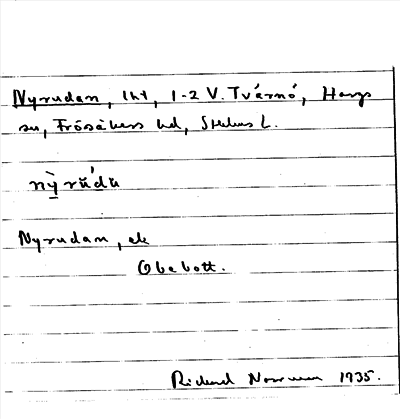 Nyrudan, lht, 1-2 V. Tvärnö, Hargs
sn, Frösåkers hd, Sthlms L.
nỳrŭ́dŭ
Nyrudan, ek
Obebott.
Rickard Norrman 1935.